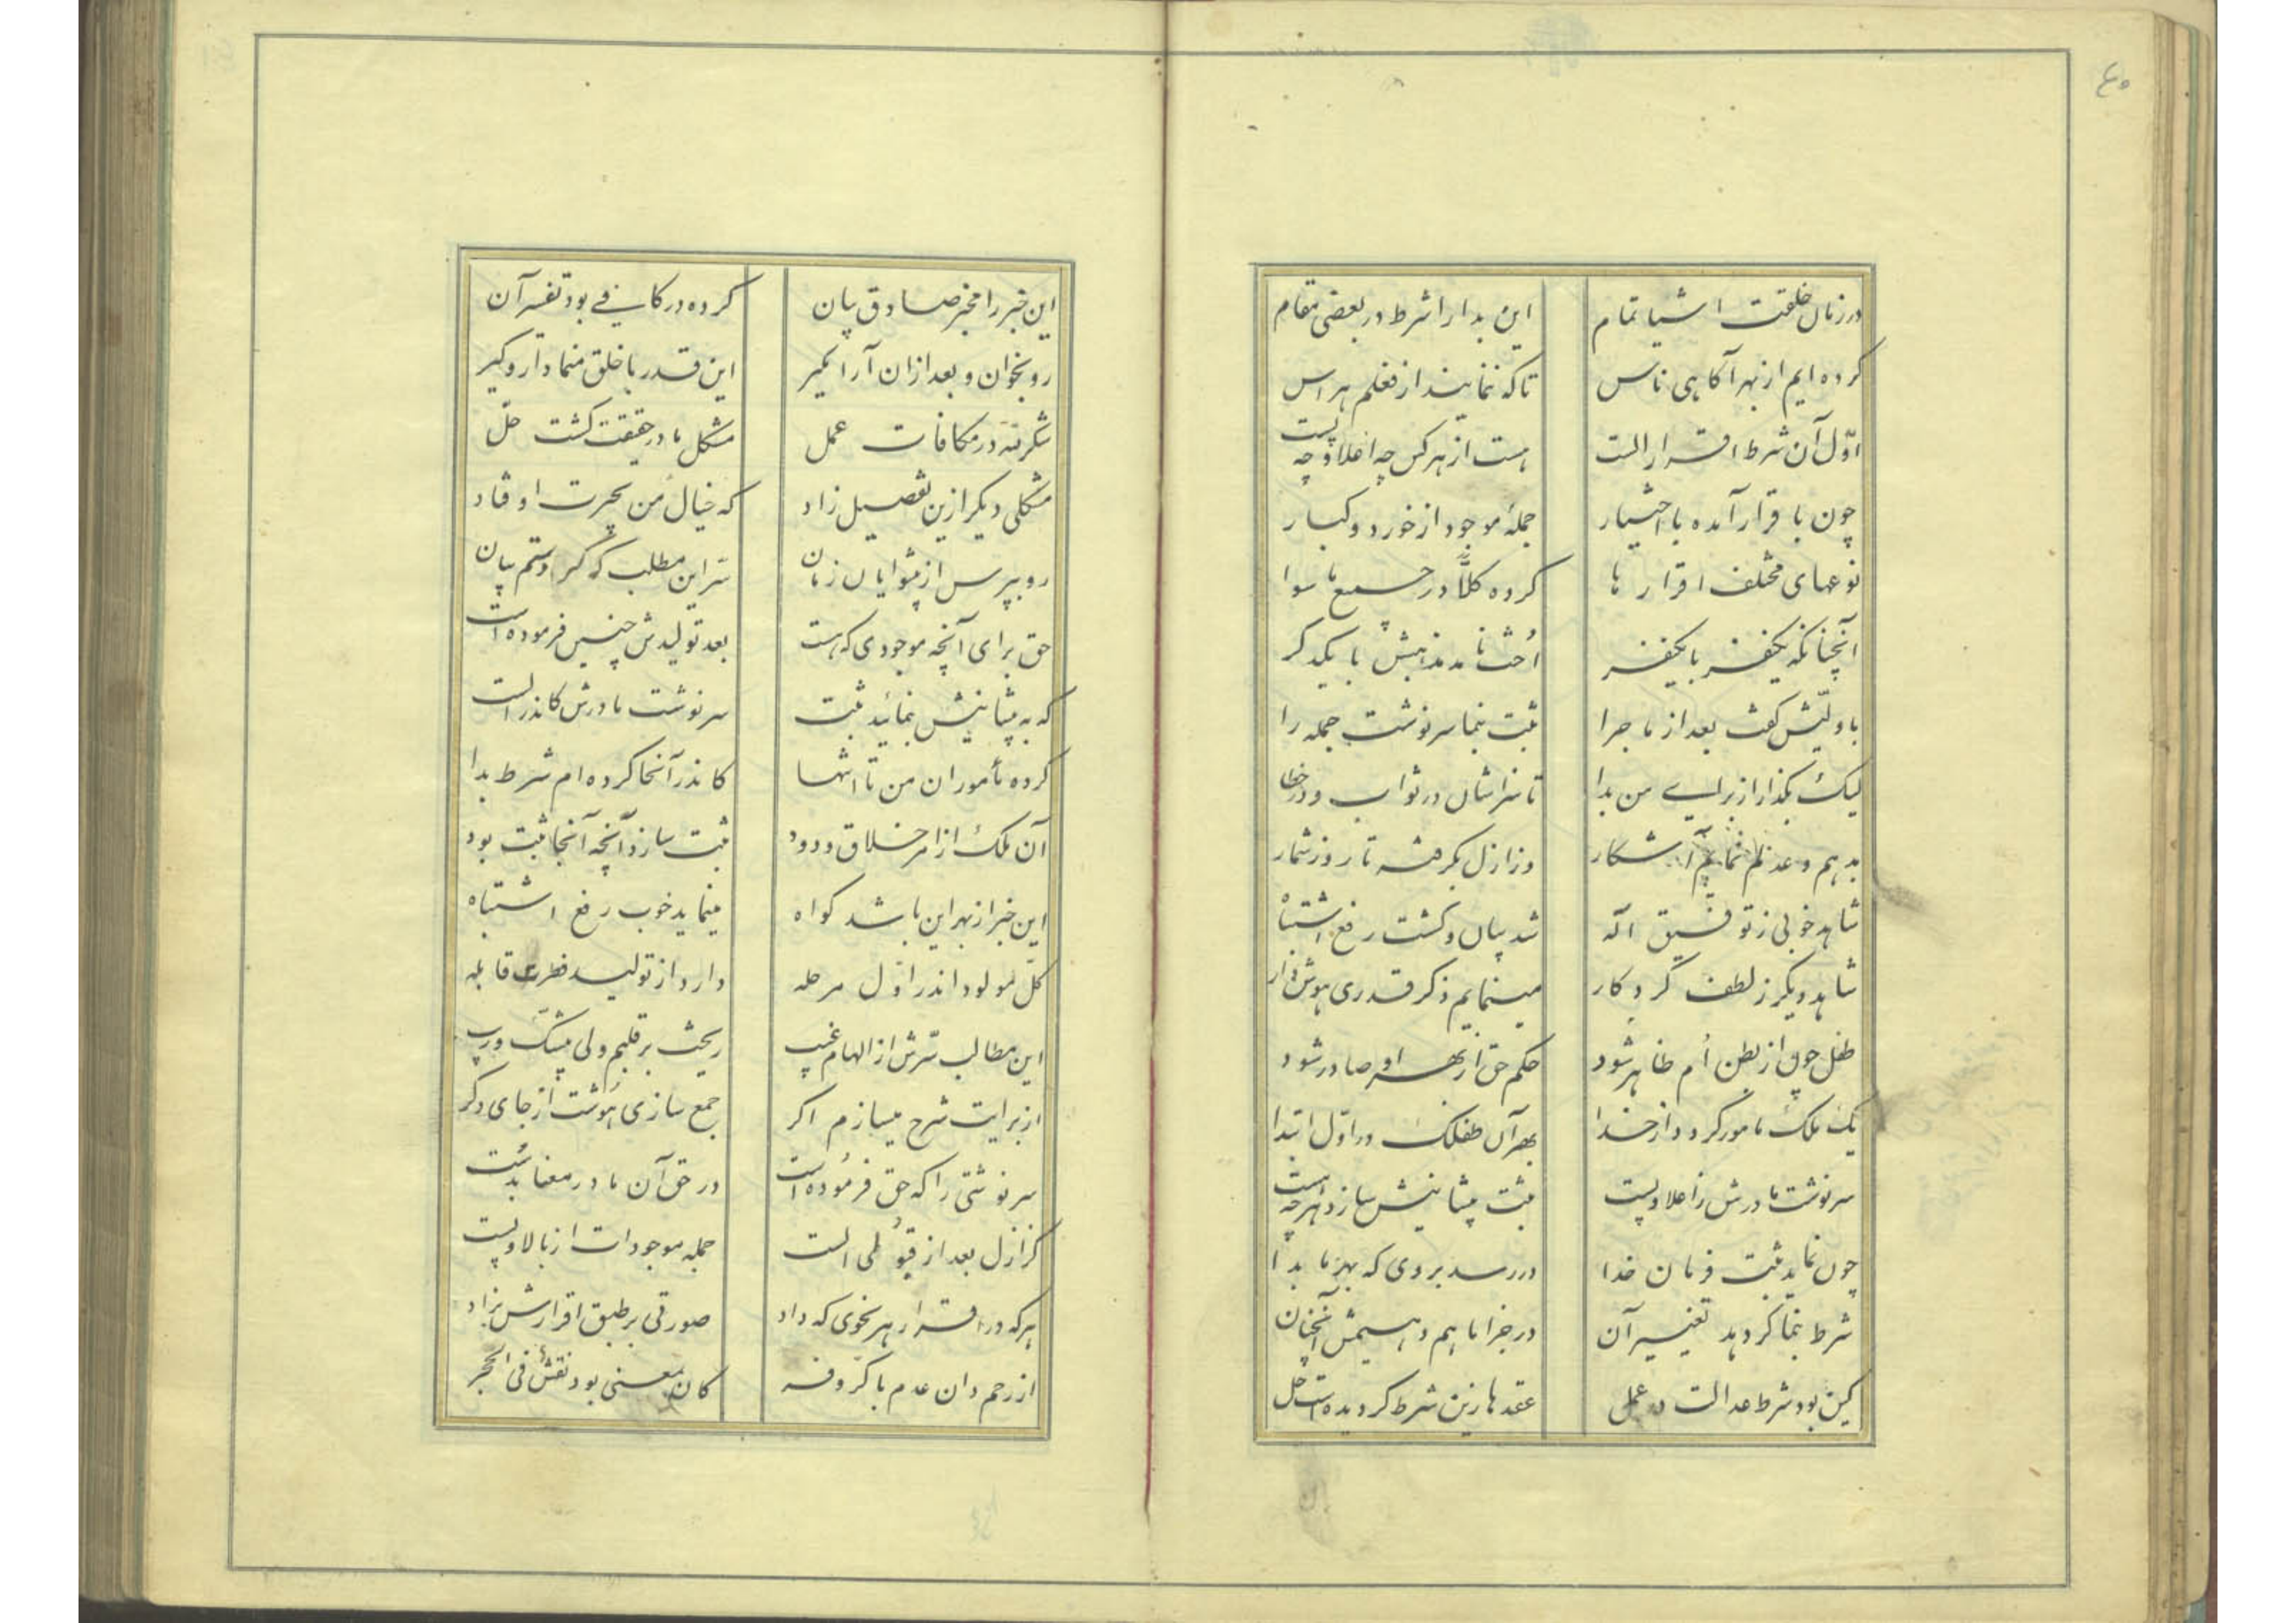 ۴۵
در زمان خلقت اشیا تمام این بدا را شرط در بعضی مقام
کرده ایم از بهر آگاهی ناس تا که ننمایند از فعلم هراس
اوّل آن شرط اقرار الست هست از هر کس چه اعلا و چه پست
چون باقرار آمده با اختیار جملهٔ موجود از خورد و کبار
نوعهای مختلف اقرار ها کرده کلّاً در جمیع ما سوا
آنچنانکه یکنفر با یکنفر مذهبش با یکدگر
با ولیّش گفت بعد از ماجرا ثبت بنما سرنوشت جمله را
لیک بگذار از برای من بدا تا سزاشان در ثواب و در خطا
بدهم و عدلم نمایم آشکار وز ازل بگرفته تا روز شمار
شاهد خوبی ز توفیق اله شد بیان و گشت رفع اشتباه
شاهد دیگر ز لطف کردگار مینمایم ذکر قدری هوش دار
طفل چون از بطن اُم ظاهر شود حکم حق از بهر او صادر شود
یک ملک مامور گردد از خدا بهر آن طفلک در اوّل ابتدا
سرنوشت مادرش ز اعلا و پست ثبت پیشانیش سازد هرچه هست
چون نماید ثبت فرمان خدا در رسد بر وی که بهر ما بدا
شرط بنما گر دهد تغییر آن در جزا ما هم دهیمش آنچنان
کین بود شرط عدالت در عمل عقدها زین شرط گردیده است حل
این خبر را مخبر صادق بیان کرده در کافی بود تفسیر آن
رو بخوان و بعد از ان آرا بگیر این قدر با خلق منما دار و گیر
شکر لله در مکافات عمل مشکل ما در حقیقت گشت حلّ
مشکلی دیگر ازین تفصیل زاد که خیال من بحیرت اوفتاد
رو بپرس از پیشوایان زمان سرّ این مطلب که کردستم بیان
حق برای آنچه موجودی که هست بعد تولیدش چنین فرموده است
که به پیشانیش بنمائید ثبت سرنوشت مادرش کاندر الست
کرده مأموران من تا انتها کاندر آنجا کرده ام شرط بدا
آن ملک از امر خلاق ودود ثبت سازد آنچه آنجا ثبت بود
این خبر از بهر این باشد گواه مینماید خوب رفع اشتباه
کلّ مولود اندر اوّل مرحله دارد از تولید فطرت قابله
این مطالب سرّش از الهام غیب ریخت بر قلبم ولی بیشکّ و ریب
از برایت شرح میسازم اگر جمع سازی هوشت از جای دگر
سرنوشتی را که حق فرموده است در حق آن مادر معنا بدست
کز ازل بعد از قبولی الست جمله موجودات از بالا و پست
هر که در اقرار هر نحوی که داد صورتی بر طبق اقرارش بزاد
از رحم دان عدم با کرّ و فر کان معنی بود نقش فی الحجر